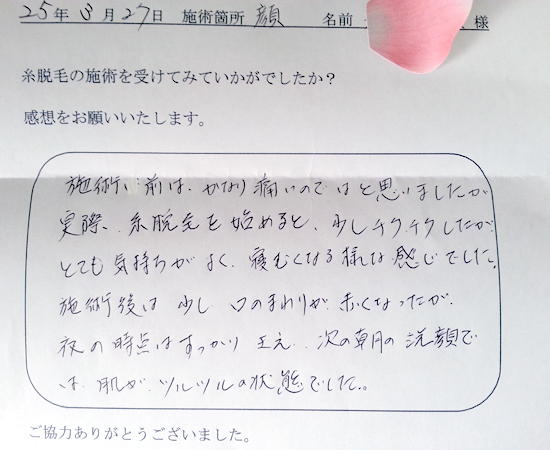 25年3月27日 施術箇所 顔 名前 様
糸脱毛の施術を受けてみていかがでしたか？
感想をお願いいたします。
施術い前は、かなり痛いのではと思いましたが
実際、糸脱毛を始めると、少しチクチクしたが、
とても気持ちがよく、寝むくなる様な感じでした。
施術後は少し口のまわりが、赤くなったが、
夜の時点はすっかり消え、次の朝の洗顔で
は、肌が、ツルツルの状態でした。
ご協力ありがとうございました。